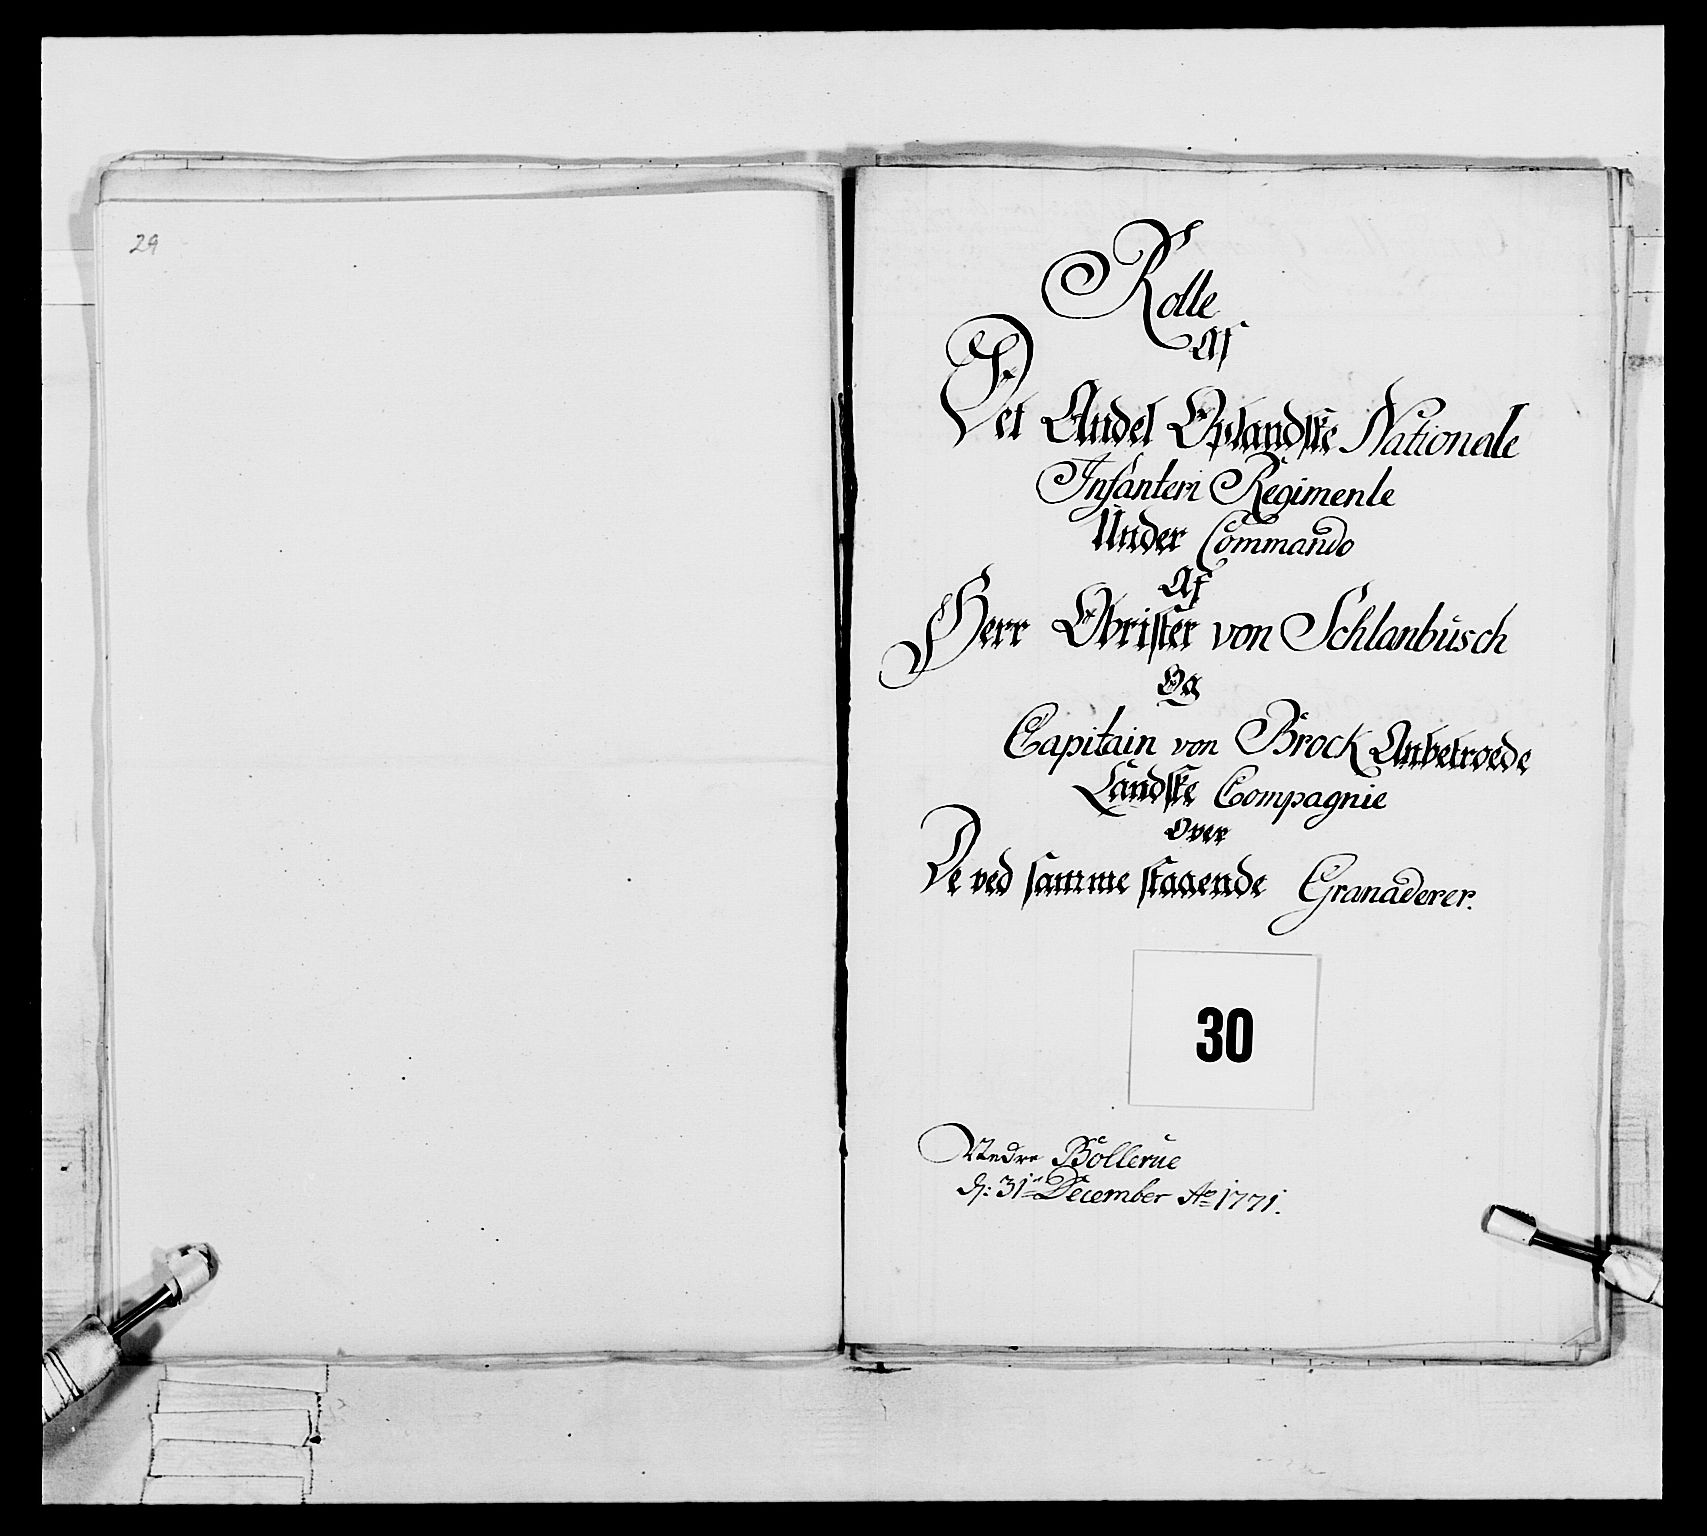 29
Rolle
Af
Det Andet Oplandske Nationale
Infanteri Regimente
Under Commando
Af
Herr Obrister von Schlanbusch
Og
Capitain von Brock Anbetroede
Landske Compagnie
Over
De ved samme staaende Granaderer.
30
Nedre Bollerue
d: 31te December Ao 1771.